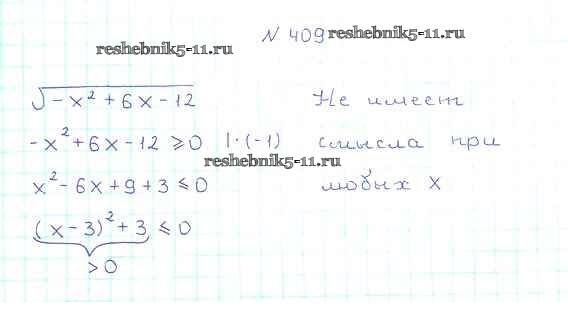 N 409 reshebnik5-11.ru
reshebnik5-11.ru
√(-x² + 6x - 12) Не имеет
-x² + 6x - 12 ⩾ 0 | · (-1) смысла при
reshebnik5-11.ru
x² - 6x + 9 + 3 ⩽ 0 любых x
(x - 3)² + 3 ⩽ 0
> 0